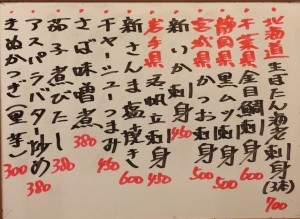 北海道 生ぼたん海老刺(3本) 700
千葉県 金目鯛刺身 600
静岡県 黒ムツ刺身 500
宮城県 かつお刺身 500
新いか刺身 450
岩手県 帆立刺身 450
新さんま塩焼き 600
チャーシューつまみ 450
さば味噌煮 380
茄子煮びたし 380
アスパラバター炒め 380
きぬかつぎ(里芋) 300